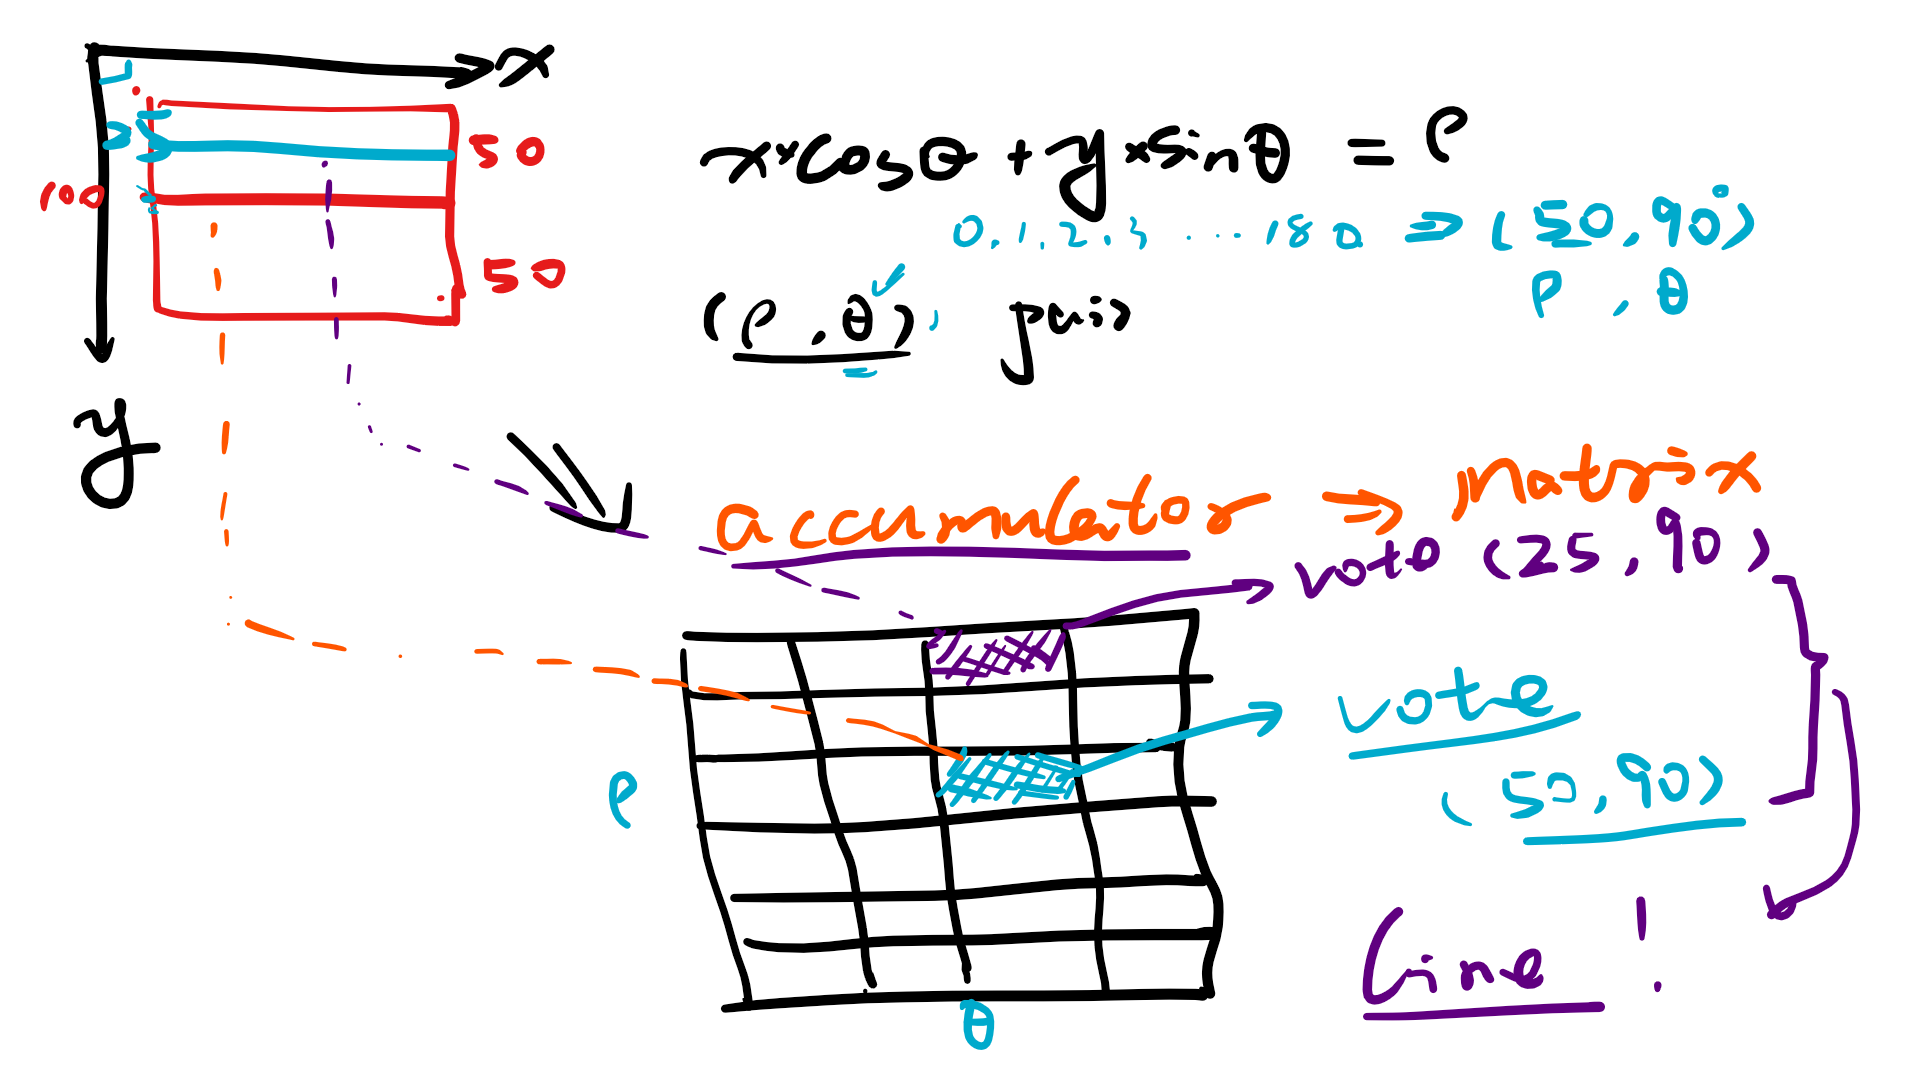 x
25
50
100
50
y
x*cosθ + y*sinθ = ρ
0, 1, 2, 3 ... 180 ⇒ (50, 90°)
ρ, θ
(ρ, θ), pair
accumulator → matrix
vote (25, 90)
vote
(50, 90)
ρ
θ
Line !